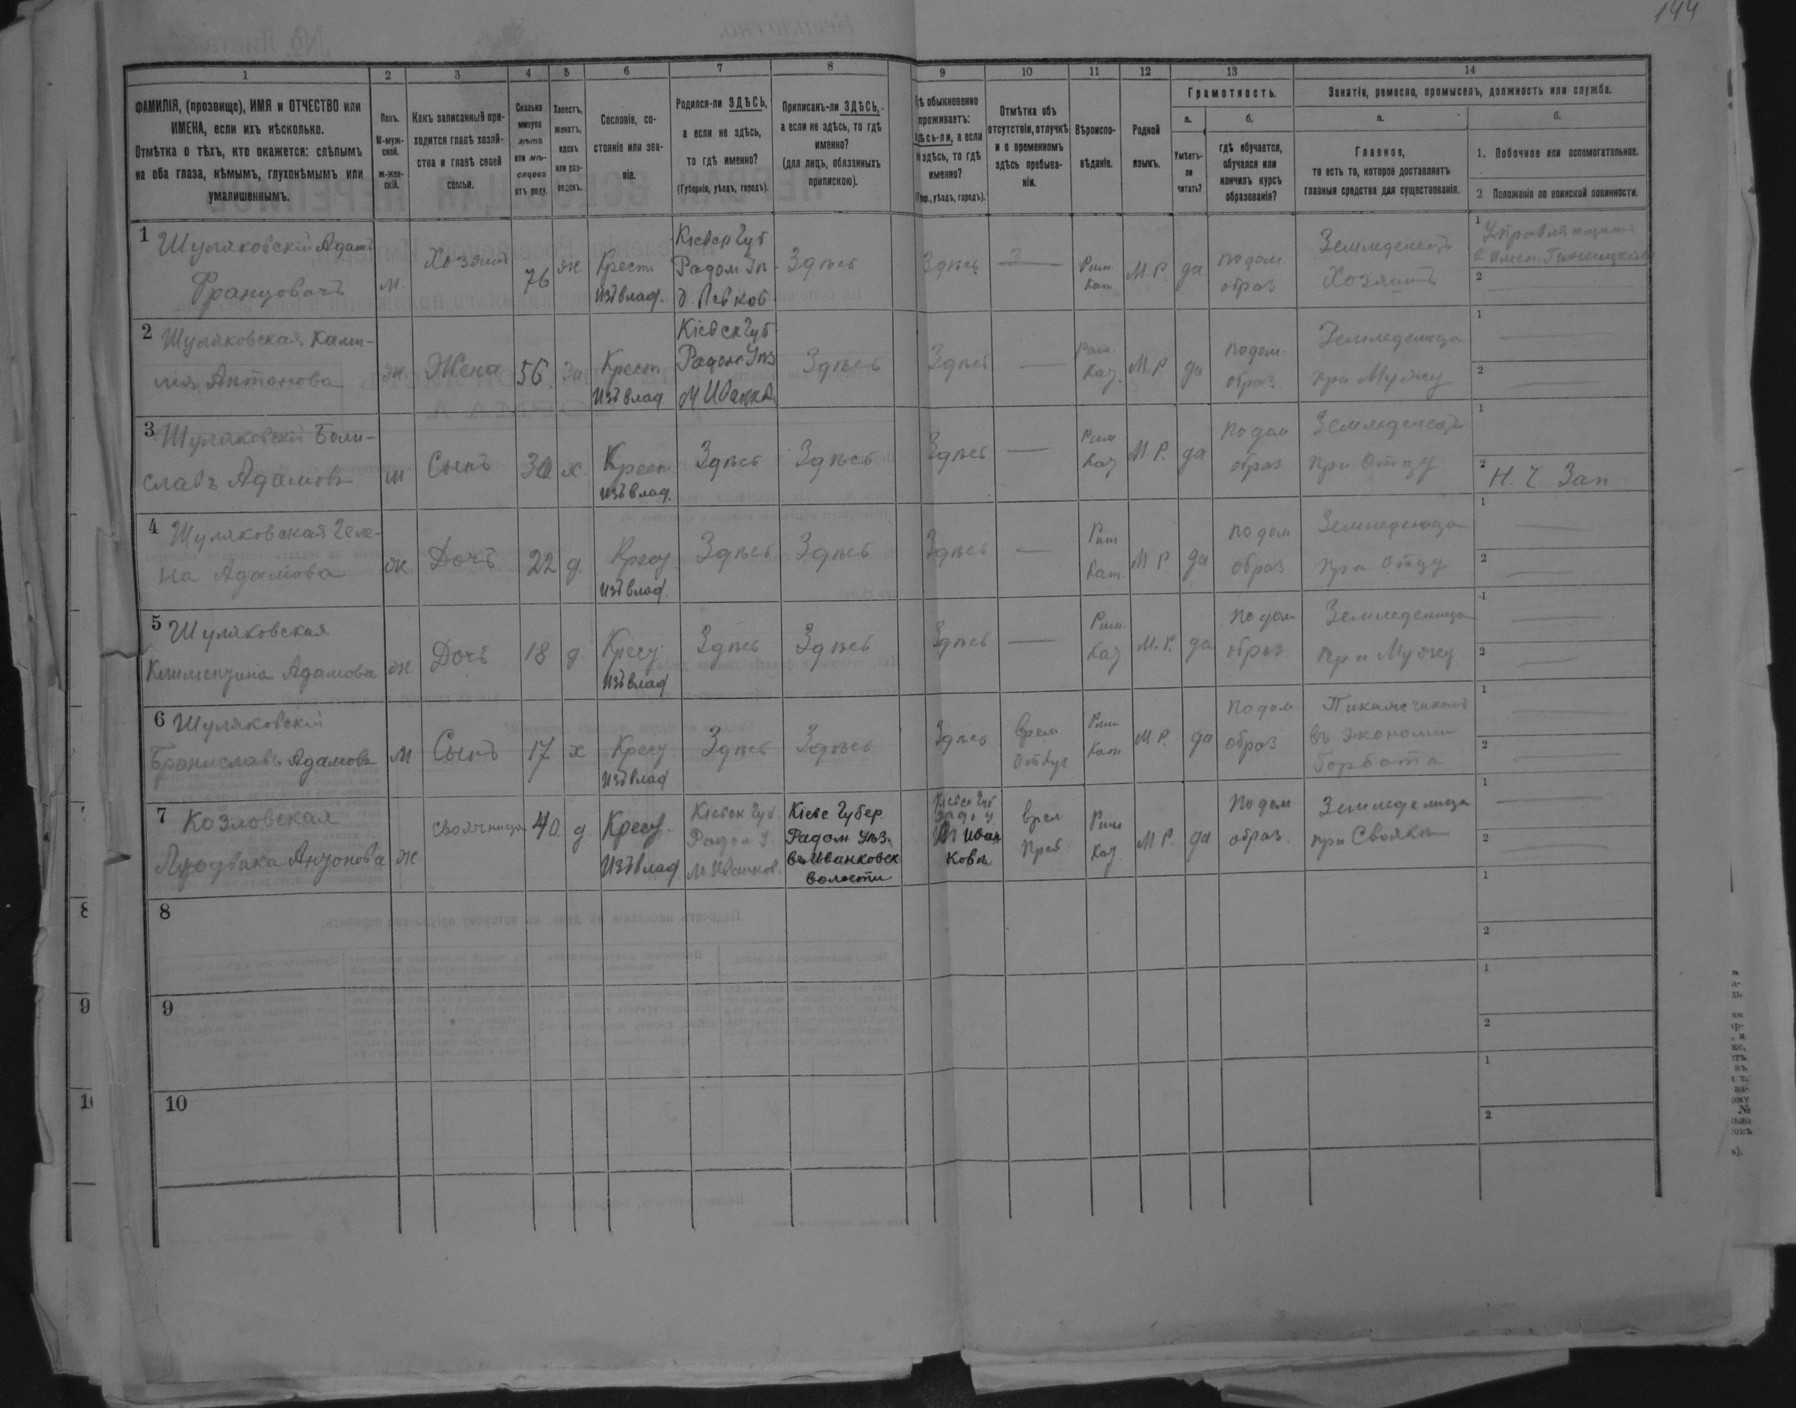 144
1 2 3 4 5 6 7 8 9 10 11 12 13 14
ФАМИЛІЯ, (прозвище), ИМЯ и ОТЧЕСТВО или
ИМЕНА, если ихъ нѣсколько.
Отмѣтка о тѣхъ, кто окажется: слѣпымъ
на оба глаза, нѣмымъ, глухонѣмымъ или
умалишеннымъ.
Полъ.
М-муж-
ской.
Ж-жен-
скій.
Какъ записанный при-
ходится главѣ хозяй-
ства и главѣ своей
семьи.
Сколько
минуло
лѣтъ
или мѣ-
сяцевъ
отъ роду.
Холостъ,
женатъ,
вдовъ
или раз-
веденъ.
Сословіе, со-
стояніе или зва-
ніе.
Родился-ли ЗДѢСЬ,
а если не здѣсь,
то гдѣ именно?
(Губернія, уѣздъ, городъ).
Приписанъ-ли ЗДѢСЬ,
а если не здѣсь, то гдѣ
именно?
(для лицъ, обязанныхъ
припискою).
обыкновенно
проживаетъ:
здѣсь-ли, а если
не здѣсь, то гдѣ
именно?
уѣздъ, городъ).
Отмѣтка объ
отсутствіи, отлучкѣ
и о временномъ
здѣсь пребыва-
ніи.
Вѣроиспо-
вѣданіе.
Родной
языкъ.
Грамотность.
а.
Умѣетъ-
ли
читать?
б.
гдѣ обучается,
обучался или
кончилъ курсъ
образованія?
Занятіе, ремесло, промыселъ, должность или служба.
а.
Главное,
то есть то, которое доставляетъ
главныя средства для существованія.
б.
1. Побочное или вспомогательное.
2 Положеніе по воинской повинности.
1 Шуляковскій Адамъ
Францовичъ
м. Хозяинъ 76 ж
Крест
изъ влад.
Кіевск Губ
Радом Уѣ
Здѣсь Здѣсь
Рим
Кат
М.Р. да
по дом.
образ
Земледелецъ
Хозяинъ
1
2
2 Шуляковская Ками-
лія Антонова
ж. Жена 56 за
Крест
изъ влад
Кіевск Губ
Радом Уѣз
М Иванк
Здѣсь Здѣсь —
Рим.
Каѳ.
М.Р. да
по дом.
образ.
Земледелица
при Мужу
1
2
3 Шуляковскій Боли-
славъ Адамовъ
м Сынъ 30 х
Крест
изъ влад.
Здѣсь Здѣсь Здѣсь —
Рим
Каѳ
М Р. да
по дом
образ
Земледелецъ
при Отцу
1
2
Н. Ч Зап
4 Шуляковская Геле-
на Адамова
ж Дочь 22 д.
изъ влад.
Здѣсь Здѣсь Здѣсь —
Рим
Кат.
М Р. да
по дом
образ
Земледелица
при Отцу
1
2
5 Шуляковская
Клементина Адамова
ж Дочь 18 д
изъ влад
Здѣсь Здѣсь Здѣсь —
Рим
Каѳ
М.Р. да
по дом
образ.
Земледелица
при Мужу
1
2
6 Шуляковскій
Брониславъ Адамовъ
м Сынъ 17 х
изъ влад
Здѣсь Здѣсь Здѣсь
врем
отлуч
Рим
Кат
М Р. да
по дом
образ
въ Экономіи
Горбата
1
2
7 Козловская
Людвика Антонова
ж свояченица 40. д
изъ влад
Кіевск Губ.
Радом У.
м. Иванков.
Кіевс Губер
Радом Уѣз.
въ Иванковск
волости
Кіевск Губ
Радом У
М Иван
ковѣ
врем
преб
Рим
Каѳ
М Р. да
по дом
образ.
Земледелица
при Своякѣ
1
2
8 1
2
9 1
2
10 1
2